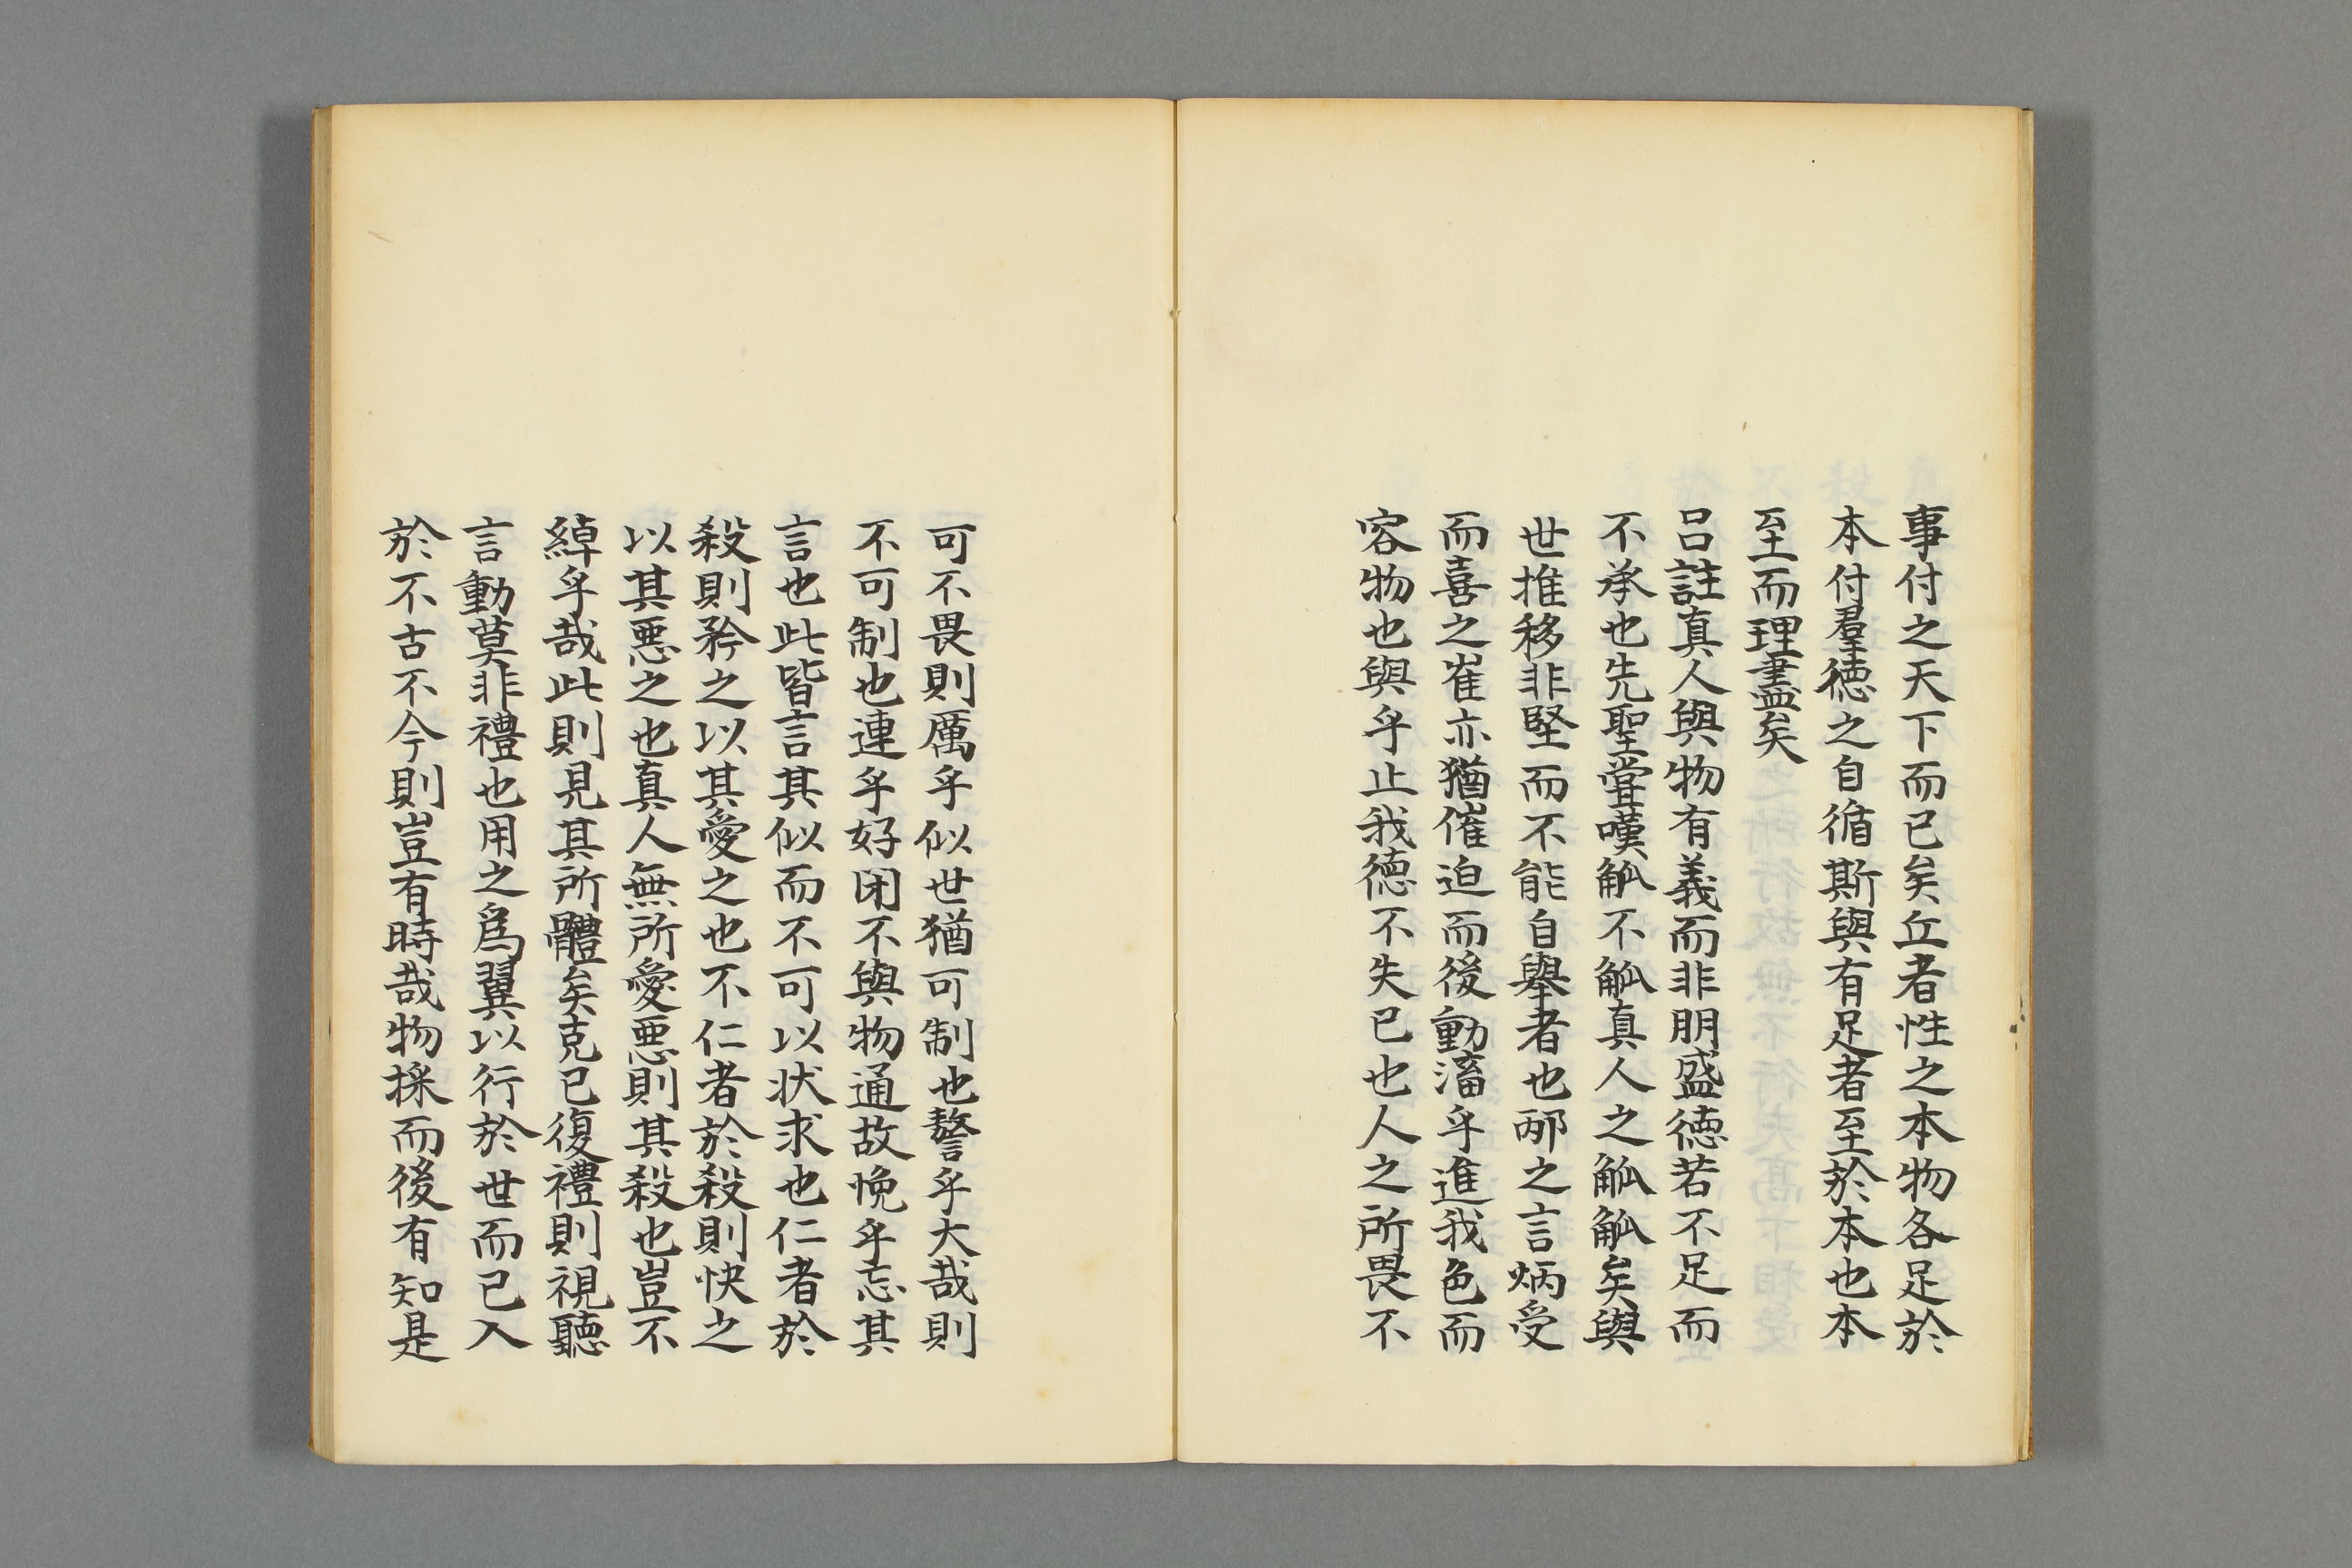 事付之天下而已矣丘者性之本物各足於
本付羣德之自循斯與有足者至於本也本
至而理盡矣
呂註真人與物有義而非朋盛德若不足而
不承也先聖甞嘆觚不觚真人之觚觚矣與
世推移非堅而不能自舉者也邴之言炳受
而喜之崔亦猶催迫而後動滀乎進我色而
容物也與乎止我德不失已也人之所畏不
可不畏則厲乎似世猶可制也謷乎大哉則
不可制也連乎好閉不與物通故悗乎忘其
言也此皆言其似而不可以状求也仁者於
殺則矜之以其愛之也不仁者於殺則快之
以其惡之也真人無所愛惡則其殺也豈不
綽乎哉此則見其所體矣克已復禮則視聽
言動莫非禮也用之爲翼以行於世而已入
於不古不今則豈有時哉物採而後有知是